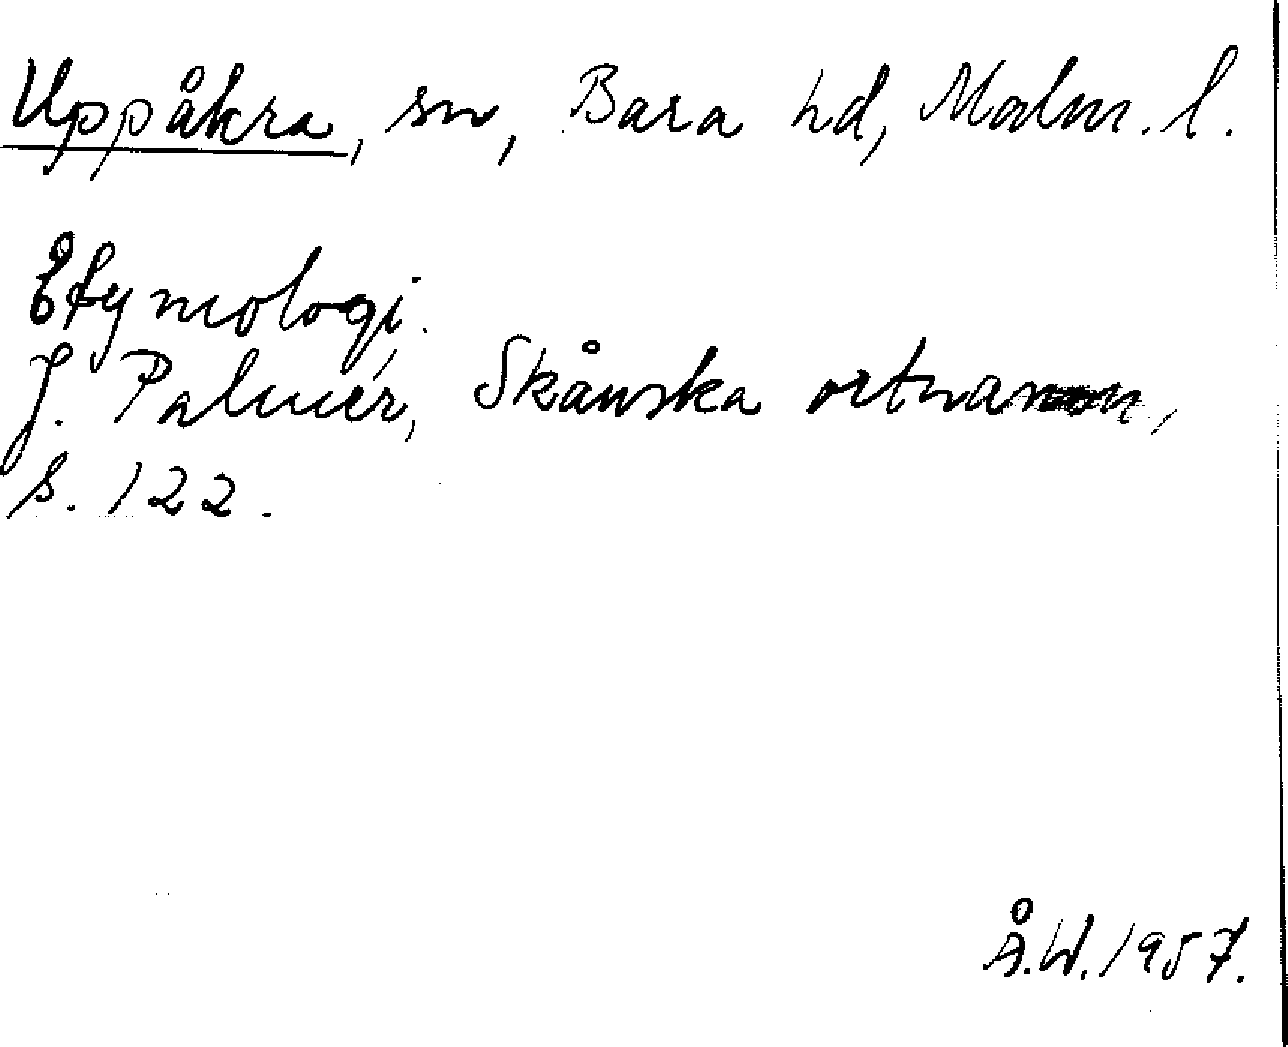 Uppåkra, sn, Bara hd, Malm. l.
Etymologi.
J. Palmér, Skånska ortnamn,
s. 122.
Å.W. 1957.